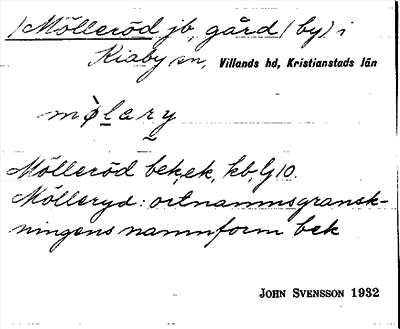 /Mölleröd jb, gård (by) i
Kiaby sn, Villands hd, Kristianstads län
mø̀lary
Mölleröd bek, ek, kb, G10.
Mölleryd: ortnamnsgransk-
ningens namnform bek
JOHN SVENSSON 1932